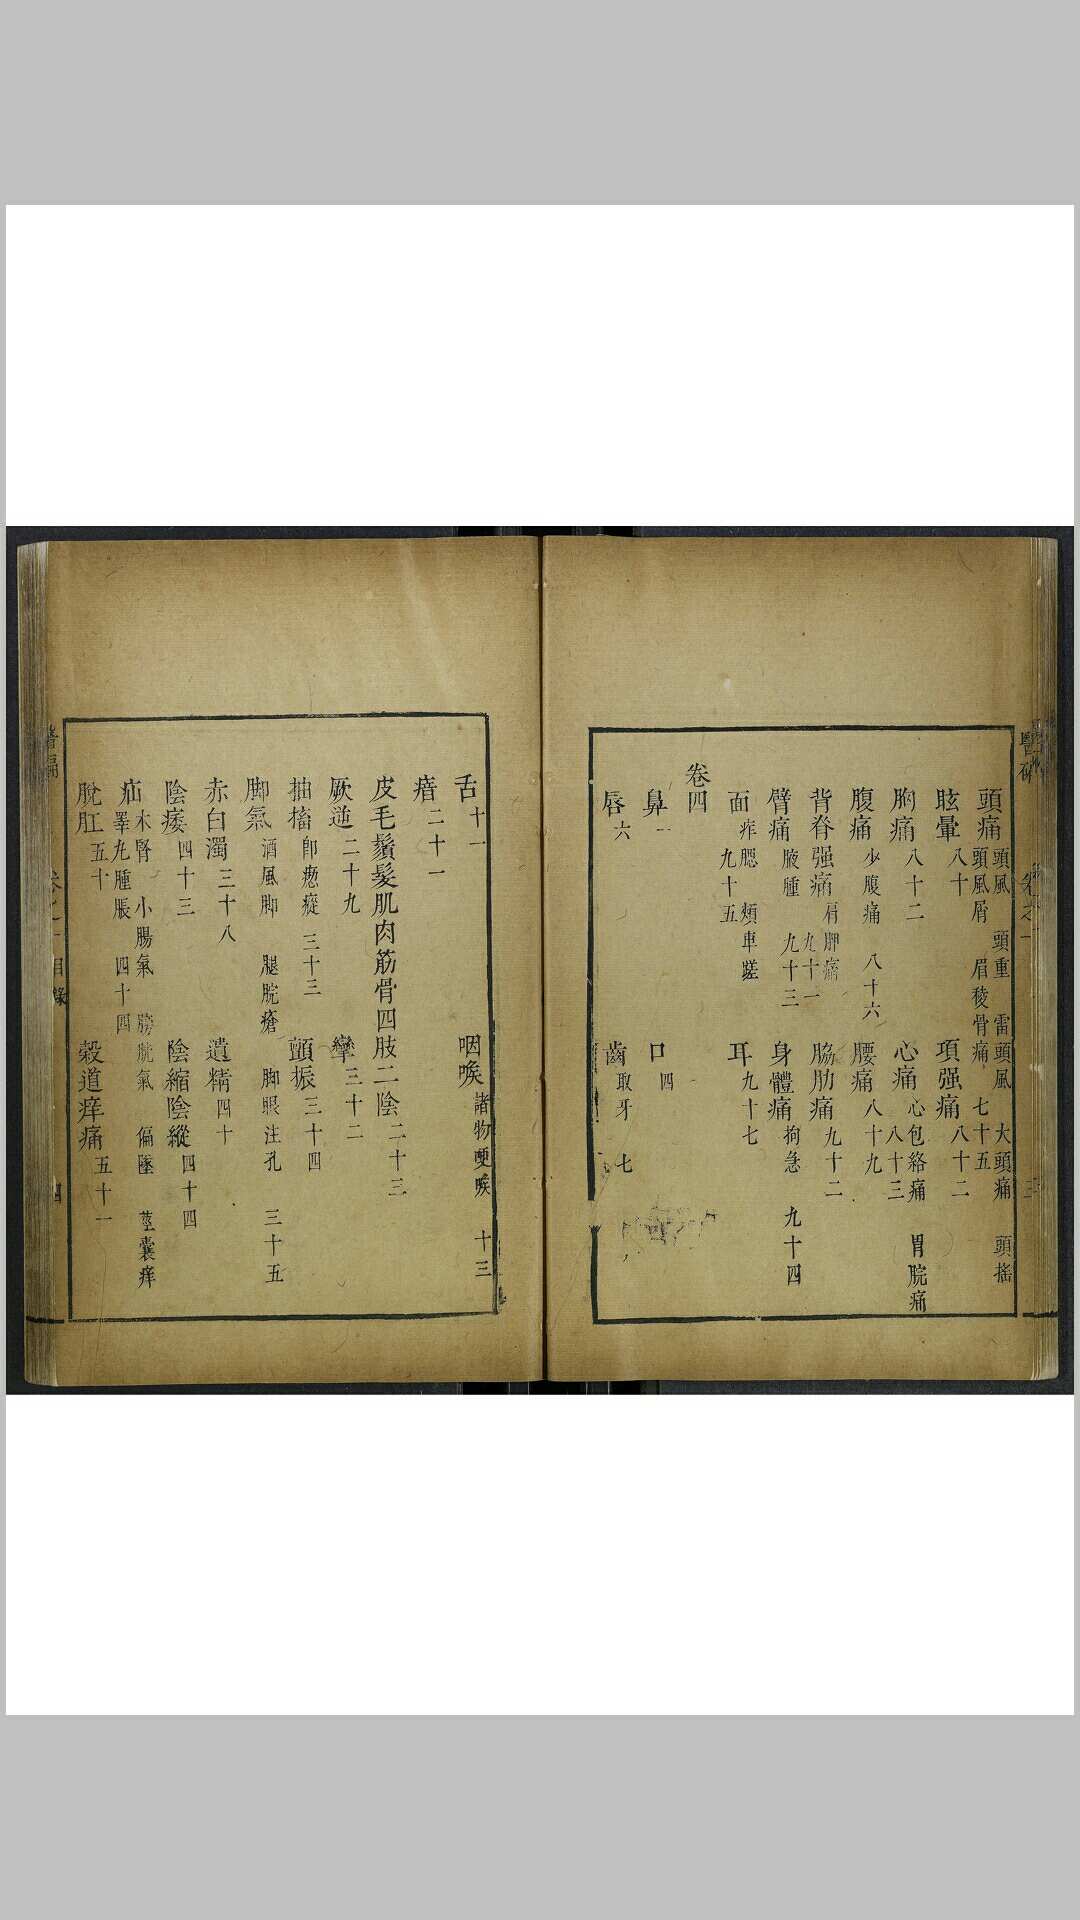 頭痛 頭風 頭重 雷頭風 大頭痛 頭搖
頭風屑 眉稜骨痛 七十五
眩暈 八十 項强痛 八十二
胸痛 八十二 心痛 心包絡痛 胃脘痛
八十三
腹痛 少腹痛 八十六 腰痛 八十九
背脊强痛 肩胛痛 九十一 脇肋痛 九十二
臂痛 腋腫 九十三 身體痛 拘急 九十四
面 痄腮 頰車蹉
九十五 耳 九十七
卷四
鼻 一 口 四
唇 六 齒 取牙 七
舌 十一 咽喉 諸物哽喉 十三
瘖 二十一
皮毛鬚髮肌肉筋骨四肢二陰 二十三
厥逆 二十九 攣 三十二
抽搐 卽瘛瘲 三十三 顫振 三十四
脚氣 酒風脚 腿脘瘡 脚眼注孔 三十五
赤白濁 三十八 遺精 四十
陰痿 四十三 陰縮陰縱 四十四
疝 木腎 小腸氣 膀胱氣 偏墜 莖囊痒
睪九腫脹 四十四
脫肛 五十 榖道痒痛 五十一